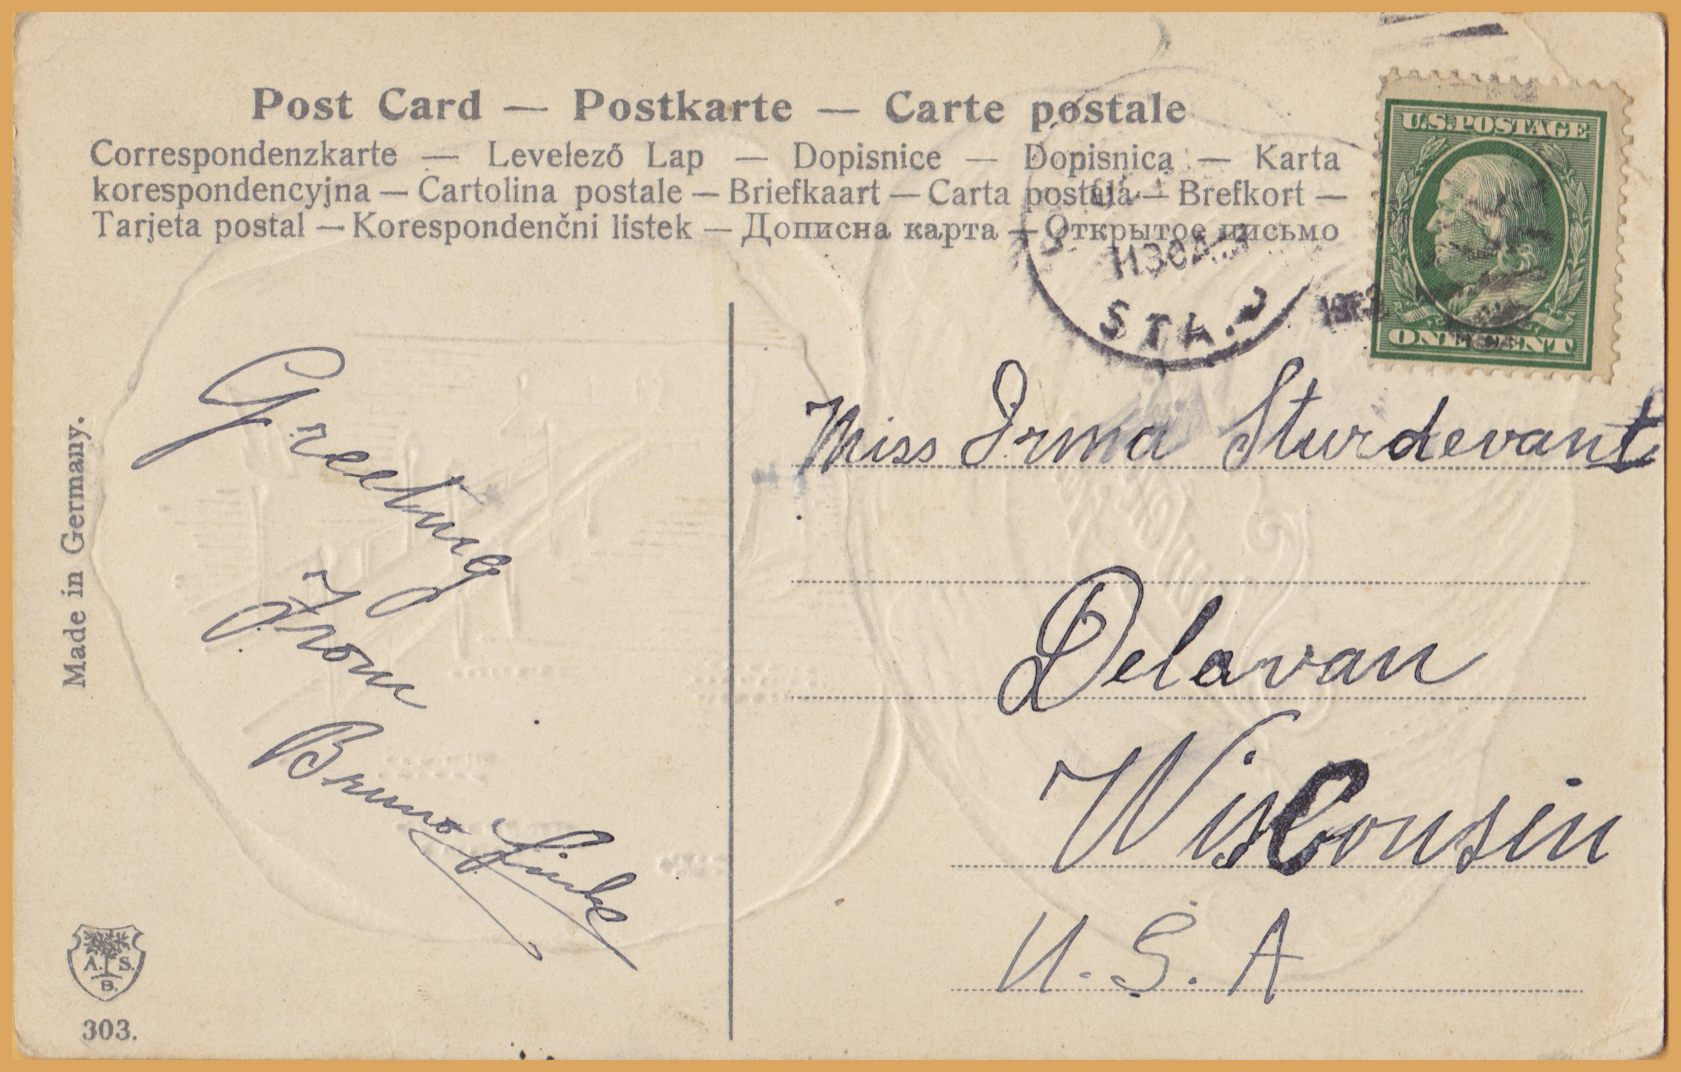 Post Card — Postkarte — Carte postale
Correspondenzkarte — Levelező Lap — Dopisnice — Dopisnica — Karta
korespondencyjna — Cartolina postale — Briefkaart — Carta postala — Brefkort —
Tarjeta postal — Korespondenčni listek — Дописна карта — Открытое письмо
U.S. POSTAGE
ONE CENT
1130A
STA.
Miss Irma Sturdevant
Delavan
Wisconsin
U. S. A
Greeting
From
Bruno
Made in Germany.
A. S.
B.
303.